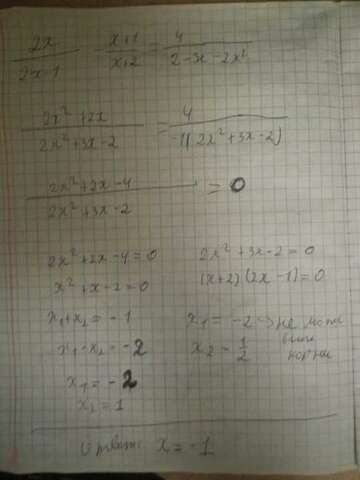 2x/(2x-1) - (x+1)/(x+2) = 4/(2-3x-2x²)
(2x²+2x)/(2x²+3x-2) = 4/(-1(2x²+3x-2))
(2x²+2x-4)/(2x²+3x-2) = 0
2x²+2x-4=0
x²+x-2=0
x₁+x₂=-1
x₁·x₂=-2
x₁=-2
x₂=1
2x²+3x-2=0
(x+2)(2x-1)=0
x₁=-2 → не
x₂-1/2
Ответ: x=-1